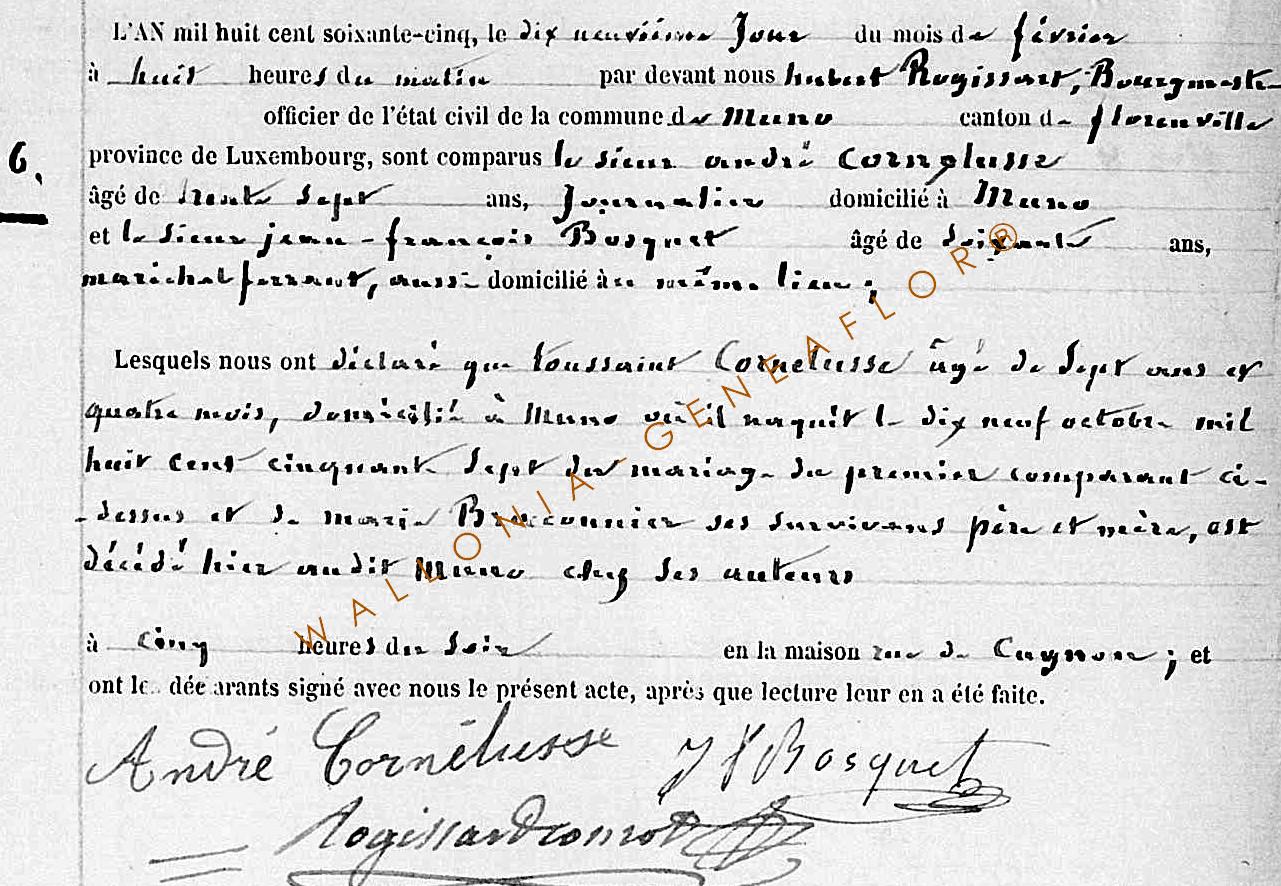 L'AN mil huit cent soixante-cinq, le dix neuvième Jour du mois de février
à huit heures du matin par devant nous hubert Rogissart, Bourgmestre
officier de l'état civil de la commune de Muno canton de florenville
6.
province de Luxembourg, sont comparus le sieur andré Cornélusse
âgé de trente sept ans, Journalier domicilié à Muno
et le sieur jean-françois Bosquet âgé de soixante ans,
maréchal ferrant, aussi domicilié au même lieu ;
Lesquels nous ont déclaré que toussaint Cornelusse âgé de sept ans et
quatre mois, domicilié à Muno où il naquit le dix neuf octobre mil
huit cent cinquante sept du mariage du premier comparant ci-
-dessus et de marie Braconnier ses survivans père et mère, est
décédé hier audit Muno chez ses auteurs
à cinq heures du soir en la maison rue de Cugnon ; et
ont les déclarants signé avec nous le présent acte, après que lecture leur en a été faite.
André Cornélusse J F Bosquet
Rogissart
WALLONIA-GENEAFLOR®